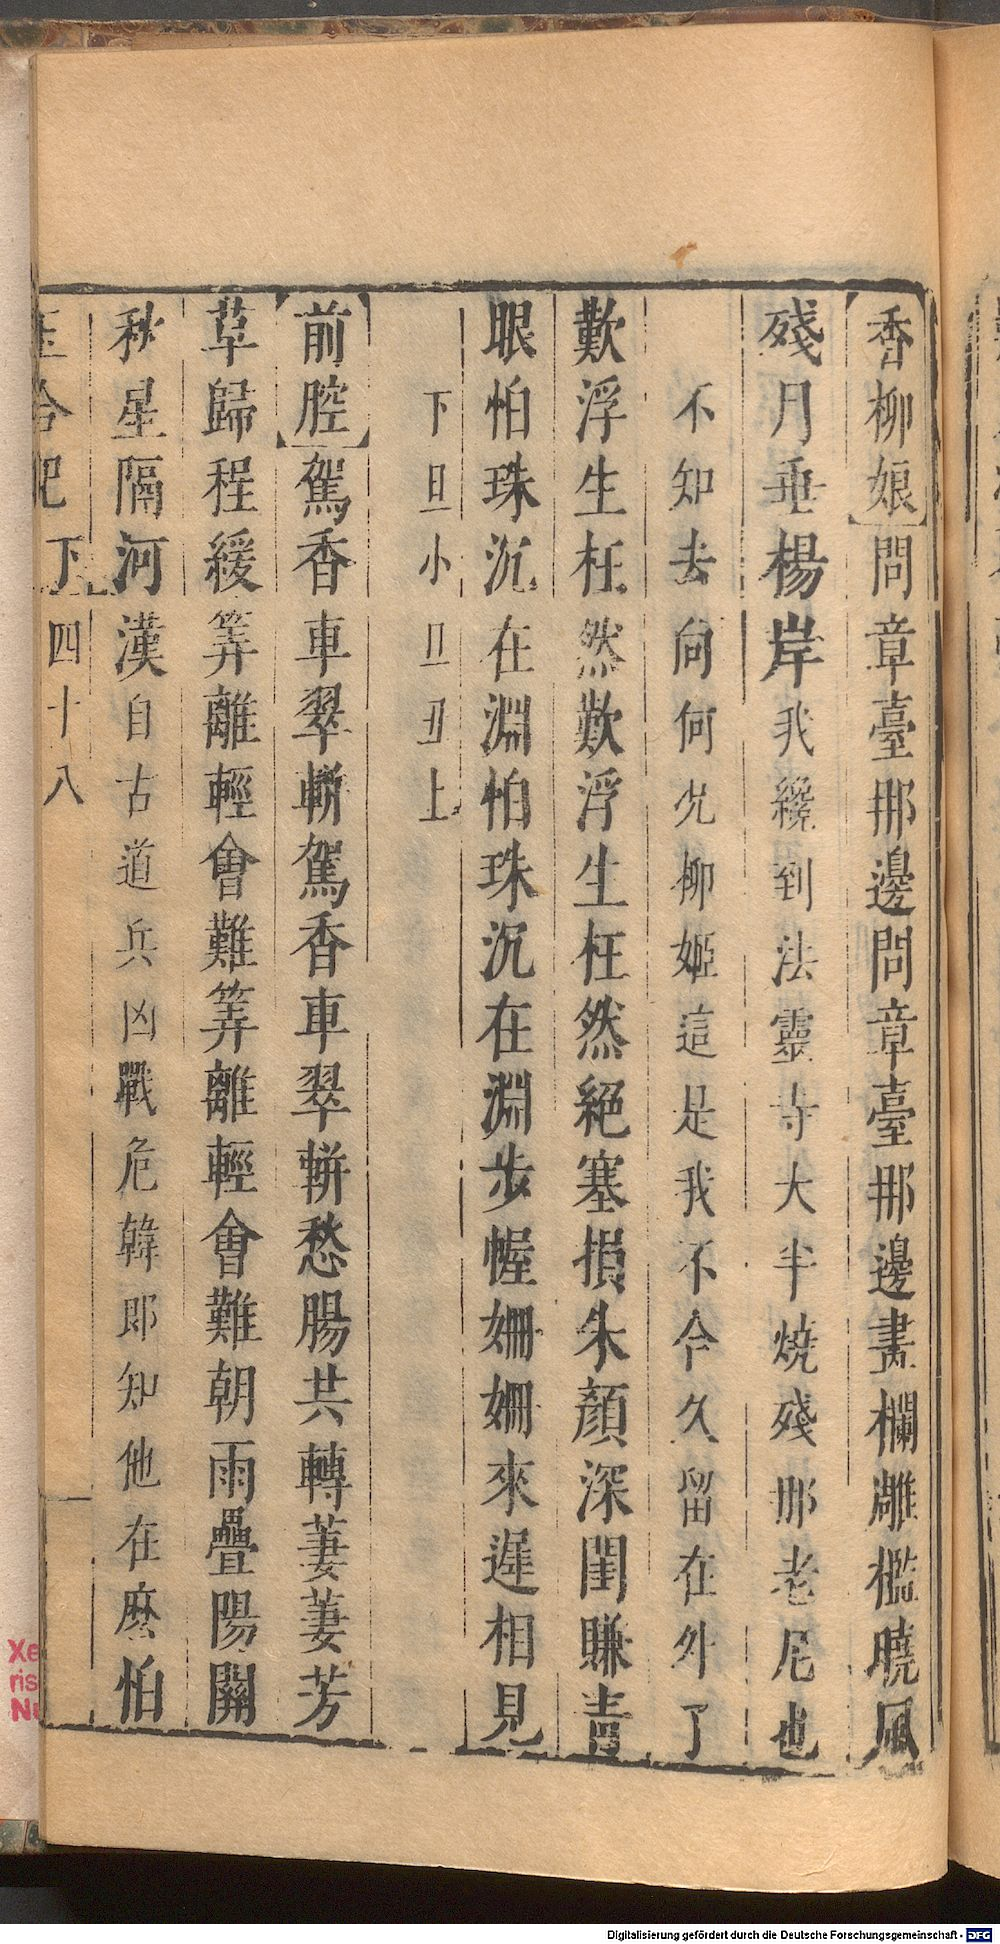 【香柳娘】問章臺那邊問章臺那邊畫欄雕檻曉風
殘月垂楊岸我纔到法靈寺大半燒殘那老尼也
不知去向何况柳姬這是我不合久留在外了
歎浮生枉然歎浮生枉然絕塞損朱顏深閨賺青
眼怕珠沉在淵怕珠沉在淵步幄姍姍來遲相見
下旦小旦丑上
【前腔】駕香車翠軿駕香車翠軿愁腸共轉萋萋芳
草歸程緩筭離輕會難筭離輕會難朝雨疊陽關
秋星隔河漢自古道兵凶戰危韓郎知他在麽怕
玉合記 下 四十八
Digitalisierung gefördert durch die Deutsche Forschungsgemeinschaft - DFG